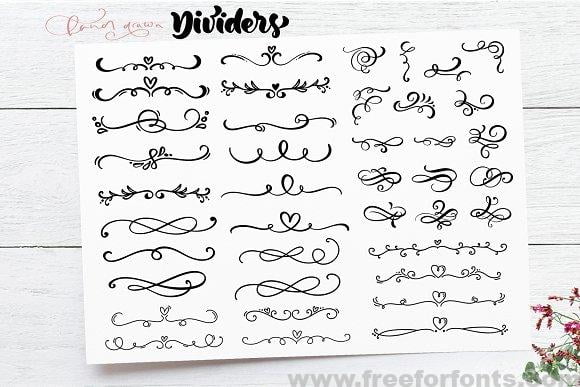 Hand drawn Dividers
www.freeforfonts.com